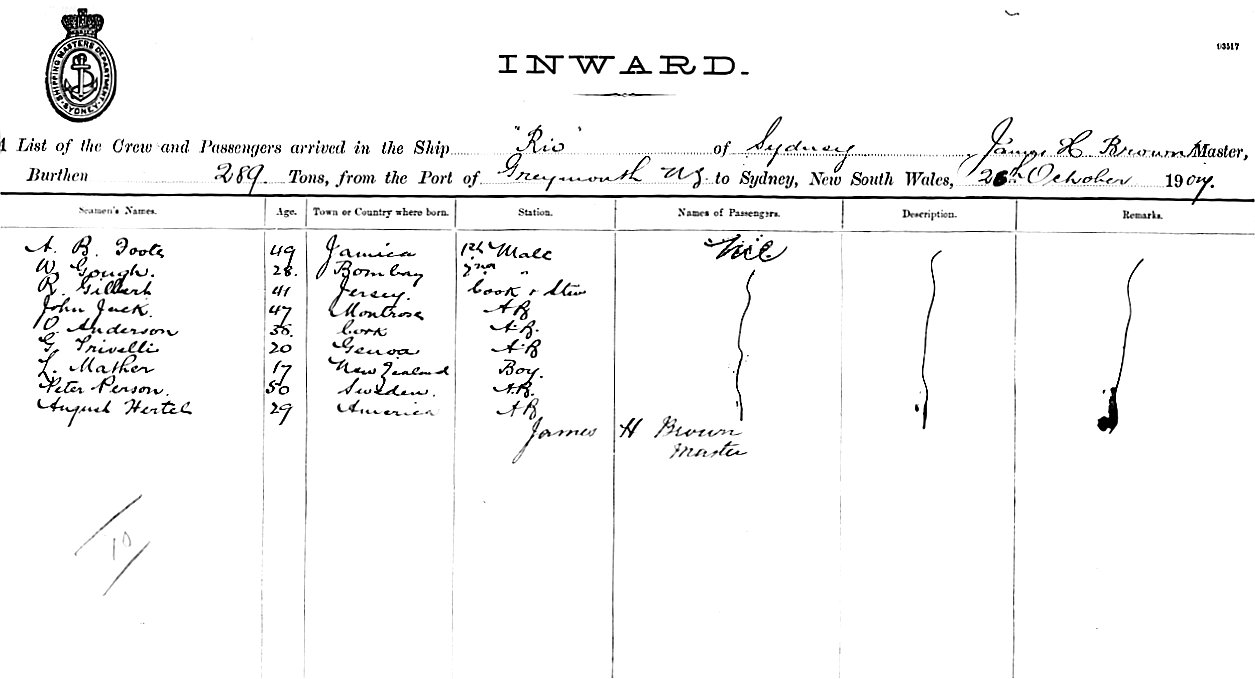 SHIPPING MASTERS DEPARTMENT SYDNEY
03517
INWARD.
A List of the Crew and Passengers arrived in the Ship "Rio" of Sydney, James H Brown Master,
Burthen 289 Tons, from the Port of Greymouth NZ to Sydney, New South Wales, 26th October 1904.
Seamen's Names. Age. Town or Country where born. Station. Names of Passengers. Description. Remarks.
A. B. Foote 49 Jamica 1st Mate Nil
W. Gough. 28. Bombay 2nd "
R. Gilbert 41 Jersey. Cook & Stew
John Jack. 47 Montrose AB
O. Anderson 38. Cork A.B.
G. Trivelli 20 Genoa AB
L. Mather 17 New Zealand Boy.
Peter Person. 50 Sweden. A.B.
August Hertel 29 America AB
James H Brown
Master
10